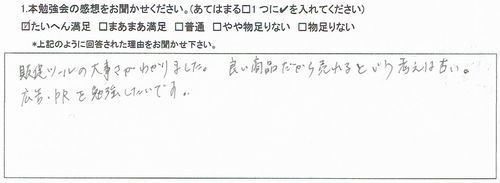 1.本勉強会の感想をお聞かせください。(あてはまる□1つに✔を入れてください)
☑たいへん満足 □まあまあ満足 □普通 □やや物足りない □物足りない
*上記のように回答された理由をお聞かせ下さい。
販促ツールの大事さがわかりました。 良い商品だから売れるという考えは古い。
広告・PRを勉強したいです。